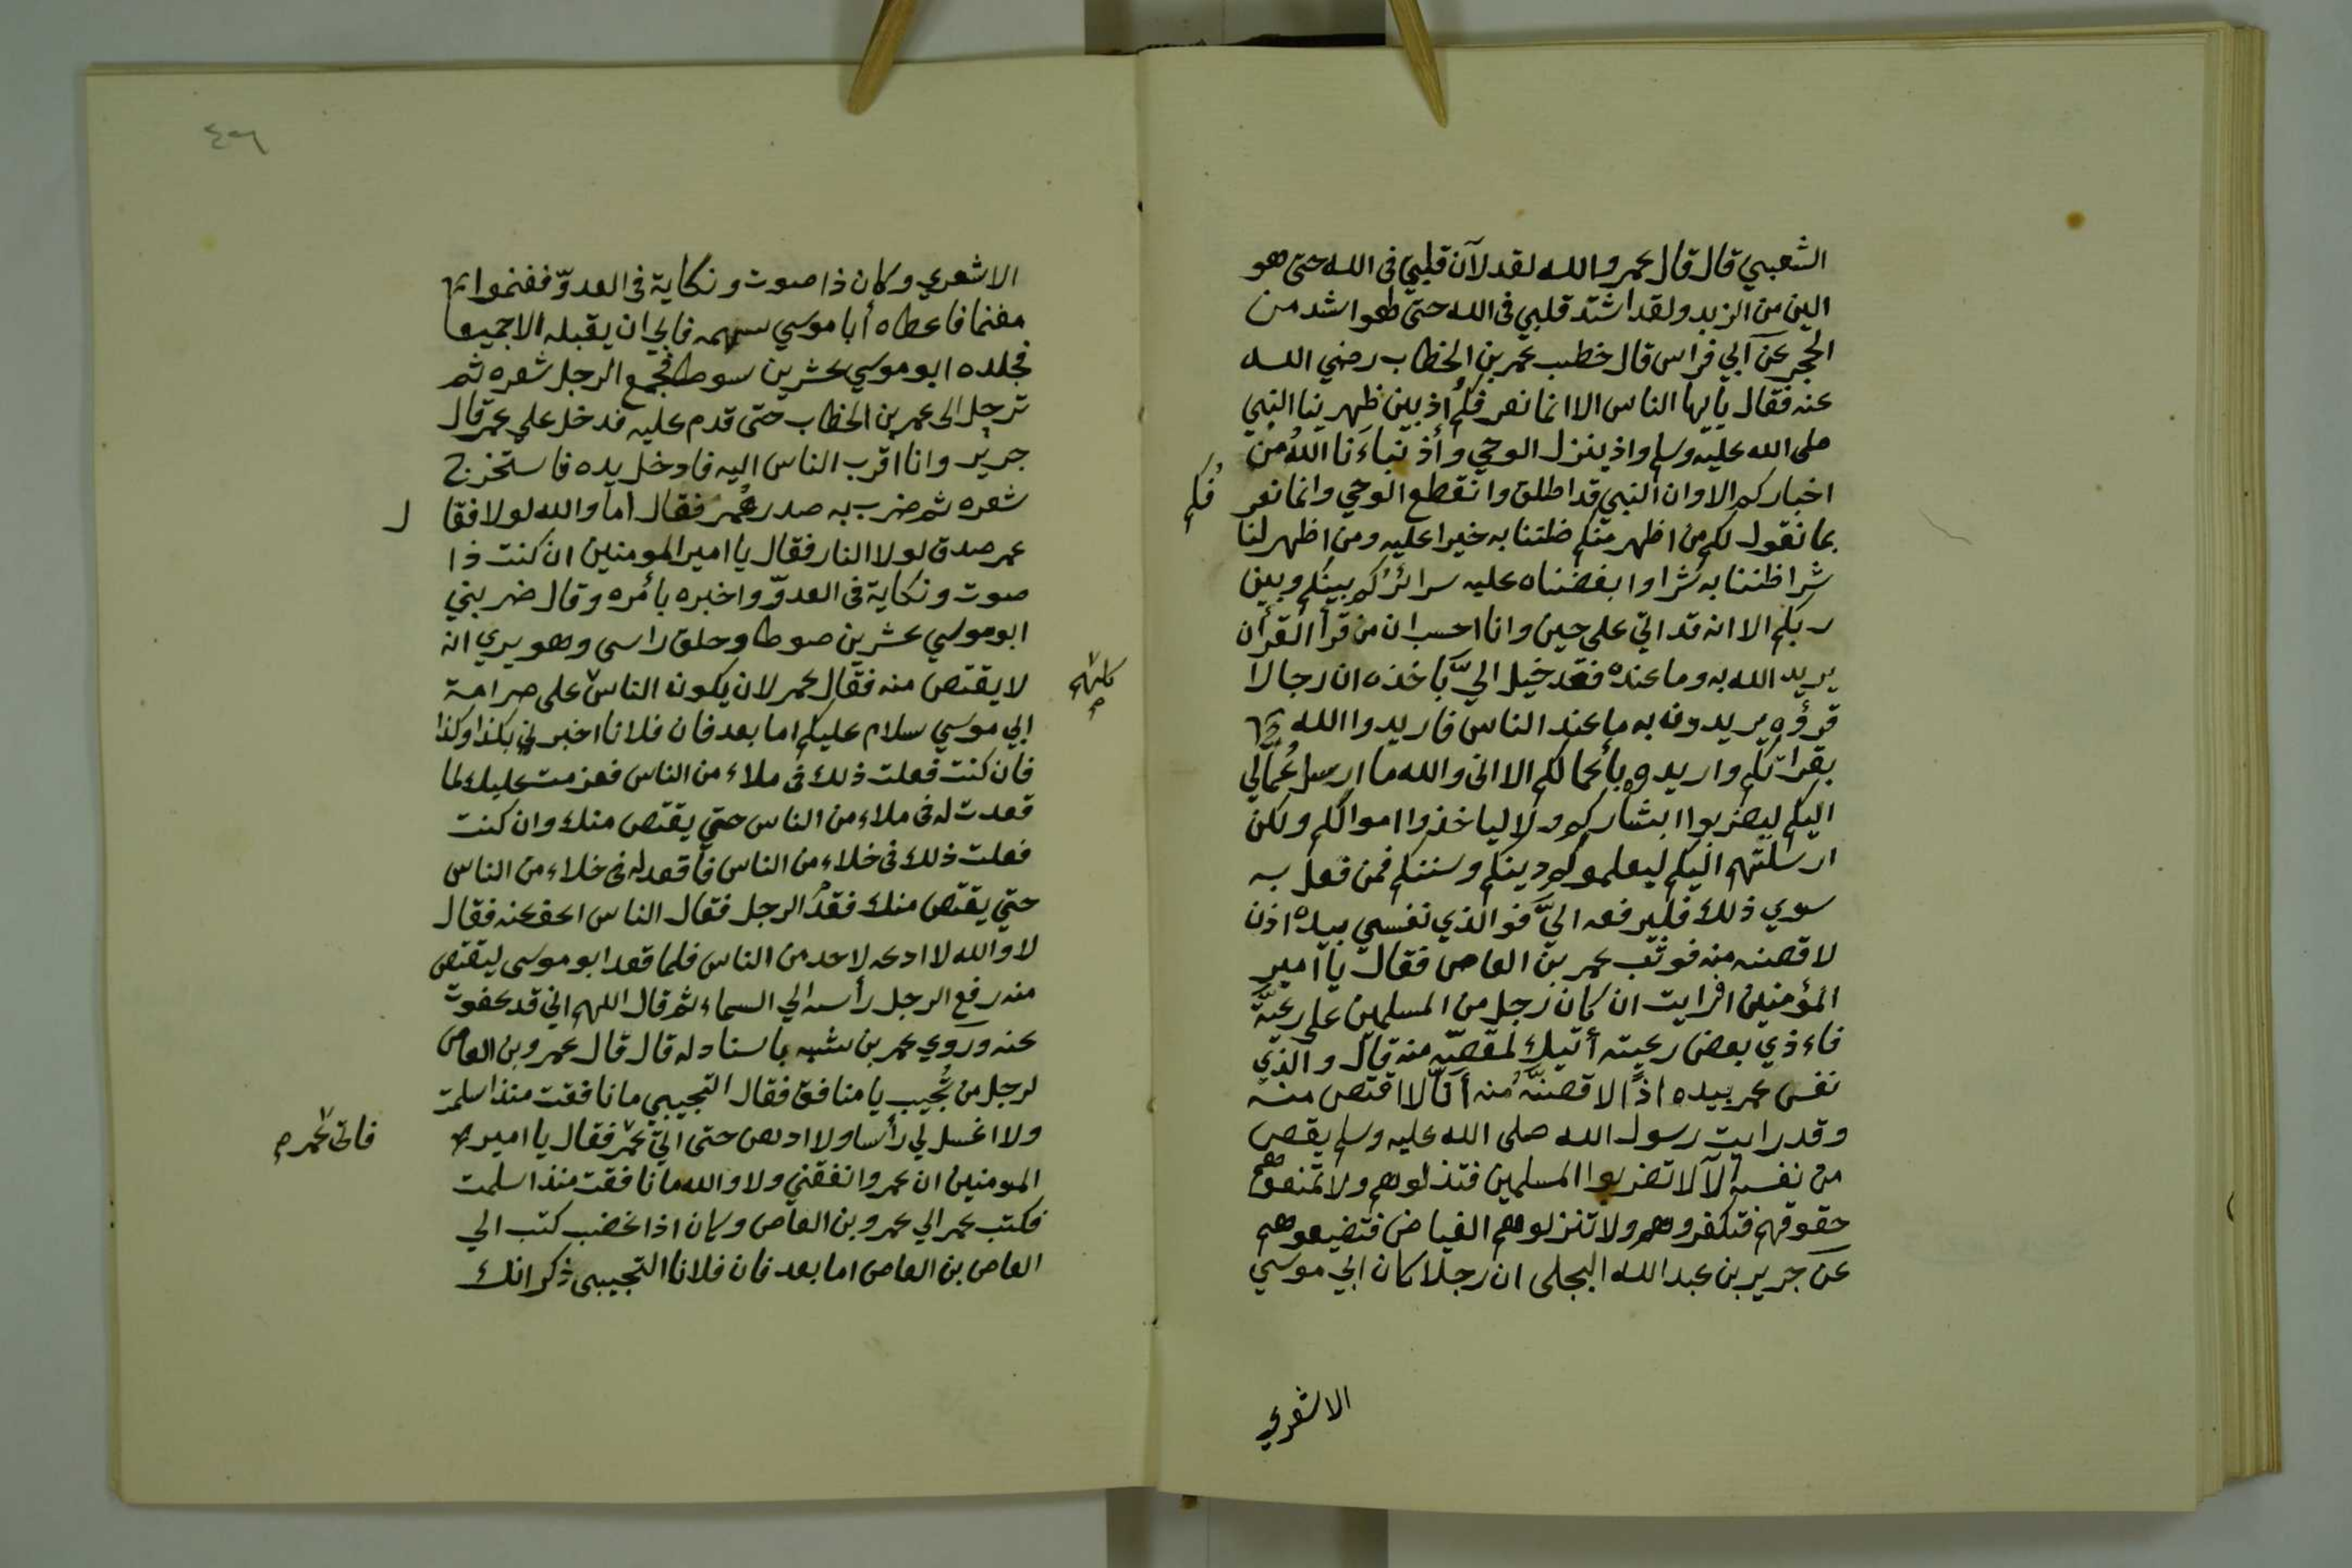 الشعبي قال قال عمر والله لقد لآن قلبي في الله حتى هو
الين من الزبد ولقد اشتد قلبي في الله حتى لهو اشد من
الحجر عن ابي فراس قال خطب عمر بن الخطاب رضي الله
عنه فقال يايها الناس الا انما نعرفكم اذ بين ظهرينا النبي
صلى الله عليه وسلم واذ ينزل الوحي وأذ نباءنا الله من
اخباركم الا وان النبي قد اطلق وانقطع الوحي وانما نعر
فكم
بما نقول لكم من اظهر منكم ظننا به خيرا عليه ومن اظهر لنا
شرا ظننا به شرا وابغضناه عليه سرائركم بينكم وبين
ربكم الا انه قد اتى علي حين وانا احسب ان من قرأ القرأن
يريد الله به وما عنده فقد خيل اليَّ بأخذه ان رجالا
قرؤه يريدون به ما عند الناس فاريدوا الله
بقرأتكم واريدوه بأعمالكم الا اني والله ما ارسل عُمَّالي
اليكم ليضربوا ابشاركم ولا لياخذوا اموالكم ولكن
ارسلتهم اليكم ليعلموكم دينكم وسننكم فمن فعل به
سوي ذلك فليرفعه اليَّ فو الذي نفسي بيده اذن
لاقصنه منه فوثب عمر بن العاص فقال يا أمير
المؤمنين افرايت ان كان رجل من المسلمين على رعيَّة
فاءذي بعض رعيته أئنك لمقصّه منه قال والذي
نفس عمر بيده اذًا لاقصنَّه منه أنَّا لا اقتص منه
وقد رايت رسول الله صلى الله عليه وسلم يقص
من نفسه ألا لا تضربوا المسلمين فتذلوهم ولا تمنعوهم
حقوقهم فتكفروهم ولا تنزلوهم الغياض فتضيعوهم
عن جرير بن عبد الله البجلى ان رجلا كان ابي موسي
الاشعري
٤٢٦
الاشعري وكان ذا صوت ونكاية في العدوّ فغنموا
مغنما فاعطاه أبا موسي سهمه فابي ان يقبله الا جميعا
فجلده ابو موسي عشرين سوطا فجمع الرجل شعره ثم
ترحل الى عمر بن الخطاب حتى قدم عليه فدخل علي عمر قال
جرير وانا اقرب الناس اليه فادخل يده فاستخرج
شعره ثم ضرب به صدر عُمر فقال أما والله لولا فقا
ل
عمر صدق لولا النار فقال يا امير المومنين ان كنت ذا
صوت ونكاية في العدوّ واخبره بأمره وقال ضربني
ابو موسي عشرين صوطا وحلق راسى وهو يري انه
لا يقتص منه فقال عمر لان يكون الناس على صرامة
كلهم
ابي موسي سلام عليكم اما بعد فان فلانا اخبرني بكذا وكذا
فان كنت فعلت ذلك في ملاء من الناس فعزمت عليك لما
قعدت له في ملاء من الناس حتي يقتص منك وان كنت
فعلت ذلك في خلاء من الناس فأقعد له في خلاء من الناس
حتي يقتص منك فقدم الرجل فقال الناس اعف عنه فقال
لا والله لا ادعه لاحد من الناس فلما قعد ابو موسى ليقتص
منه رفع الرجل رأسه الي السماء ثم قال اللهم اني قد عفوت
عنه وروي عمر بن شبه باسناد له قال قال عمرو بن العاص
لرجل من تُجيب يا منافق فقال التجيبي ما نافقت منذ اسلمت
ولا اغسل لي رأسا ولا ادهن حتى اتي عمر فقال يا امير
فاتى عمر
المومنين ان عمروا نفقني ولا والله ما نافقت منذ اسلمت
فكتب عمر الي عمرو بن العاص وكان اذا غضب كتب الي
العاص بن العاص اما بعد فان فلانا التجيبى ذكر انك